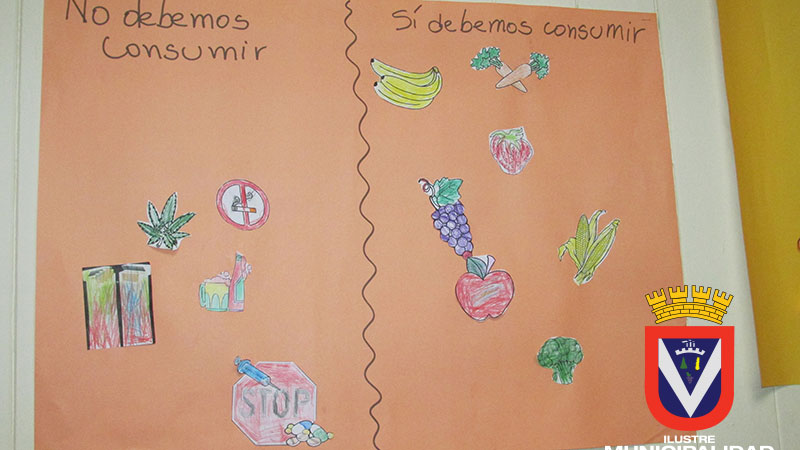 No debemos
consumir
Sí debemos consumir
STOP
ILUSTRE
MUNICIPALIDAD